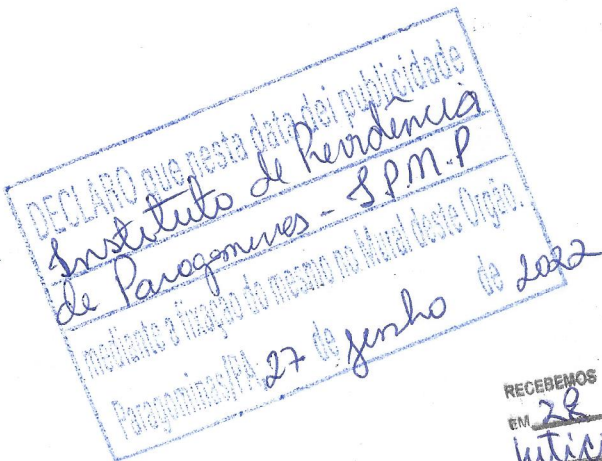 DECLARO que nesta data dei publicidade
Instituto de Previdência
de Paragominas - IPM.P
mediante a fixação do mesmo no Mural deste Orgão.
Paragominas/PA, 27 de junho de 2022
RECEBEMOS
EM 28